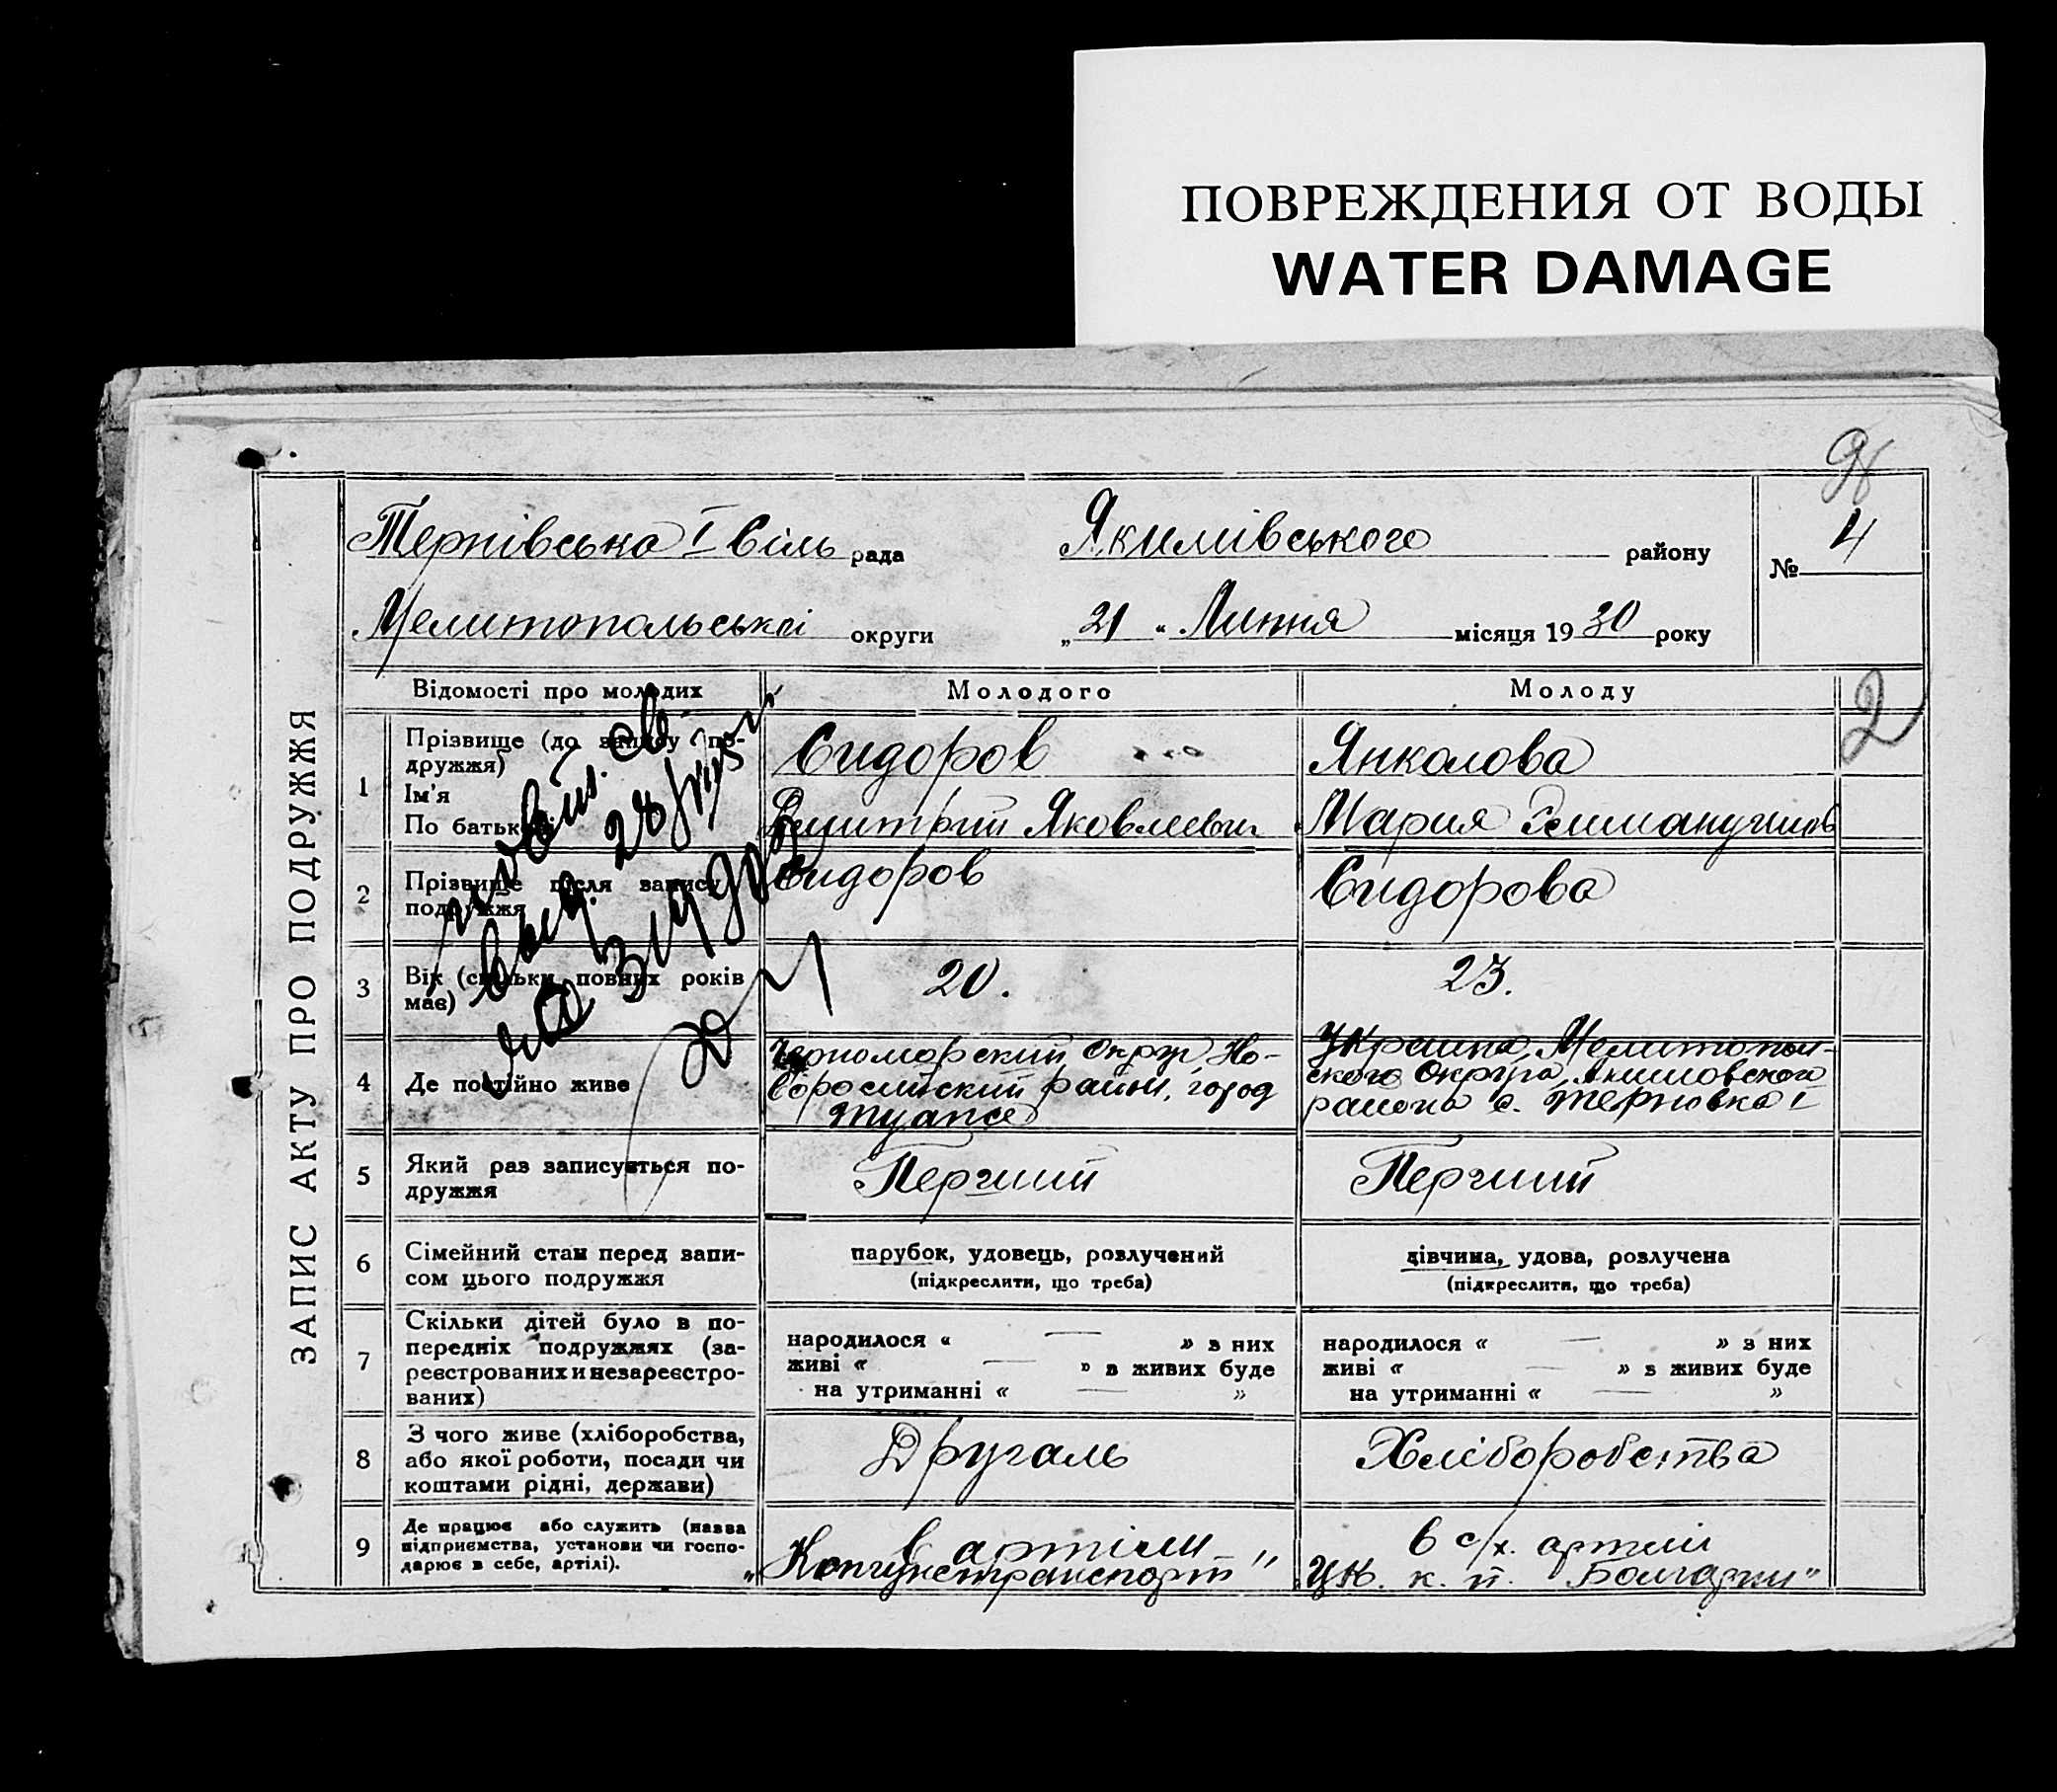 ПОВРЕЖДЕНИЯ ОТ ВОДЫ
WATER DAMAGE
98
ЗАПИС АКТУ ПРО ПОДРУЖЖЯ
Терпівська I Віль рада Якимівського району № 4
Мелитопольської округи „21“ Липня місяця 1930 року
Відомості про молодих Молодого Молоду 2
1 Прізвище (до запису подружжя) Сидоров Янколова
Ім'я
По батькові Димитрий Яковлевич Мария
2 Прізвище після запису подружжя Сидоров Сидорова
3 Вік (скільки повних років має) 20. 23.
4 Де постійно живе
Черноморский Округ, Но-
воросийский район, город
Туапсе
Украина, Мелитополь-
ского Округа, Якимовского
района с. Терновка I
5 Який раз записується по-
дружжя Перший Перший
6 Сімейний стан перед запи-
сом цього подружжя
парубок, удовець, розлучений
(підкреслити, що треба)
дівчина, удова, розлучена
(підкреслити, що треба)
7 Скільки дітей було в по-
передніх подружжях (за-
реєстрованих и незареєстро-
ваних)
народилося « — » з них
живі « — » в живих буде
на утриманні « — »
народилося « — » з них
живі « — » з живих буде
на утриманні « — »
8 З чого живе (хліборобства,
або якої роботи, посади чи
коштами рідні, держави)
Другаль Хліборобства
9 Де працює або служить (назва
підприємства, установи чи госпо-
дарює в себе, артілі).
в артіли
„ "
в с/х. артілі
к. п. Болгарки"